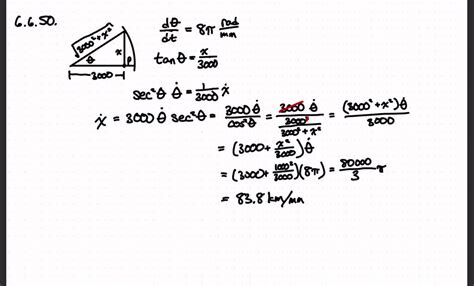 6.6.50.
√3000² + x²
θ
x
P
3000
dθ/dt = 8π rad/min
tan θ = x/3000
sec²θ θ̇ = 1/3000 ẋ
ẋ = 3000 θ̇ sec²θ = 3000 θ̇/cos²θ = 3000 θ̇/(3000²/(3000² + x²)) = (3000² + x²)θ̇/3000
= (3000 + x²/3000) θ̇
= (3000 + 1000²/3000)(8π) = 80000/3 π
= 83.8 km/min